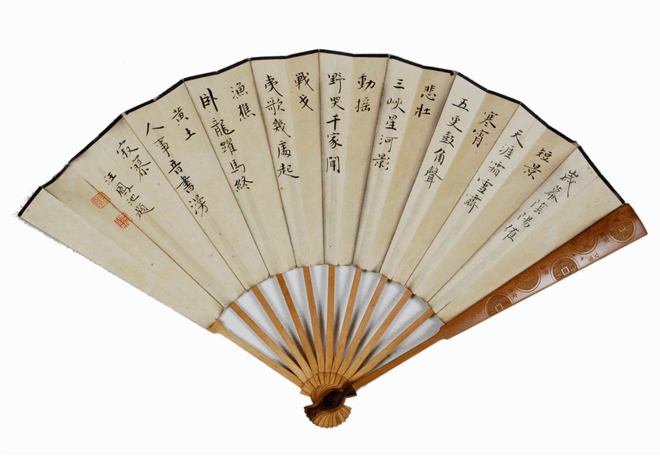 歲暮陰陽催
短景
天涯霜雪霽
寒宵
五更鼓角聲
悲壯
三峽星河影
動搖
野哭千家聞
戰戈
夷歌幾處起
漁樵
臥龍躍馬終
黃土
人事音書漫
寂寥
汪鳳池題